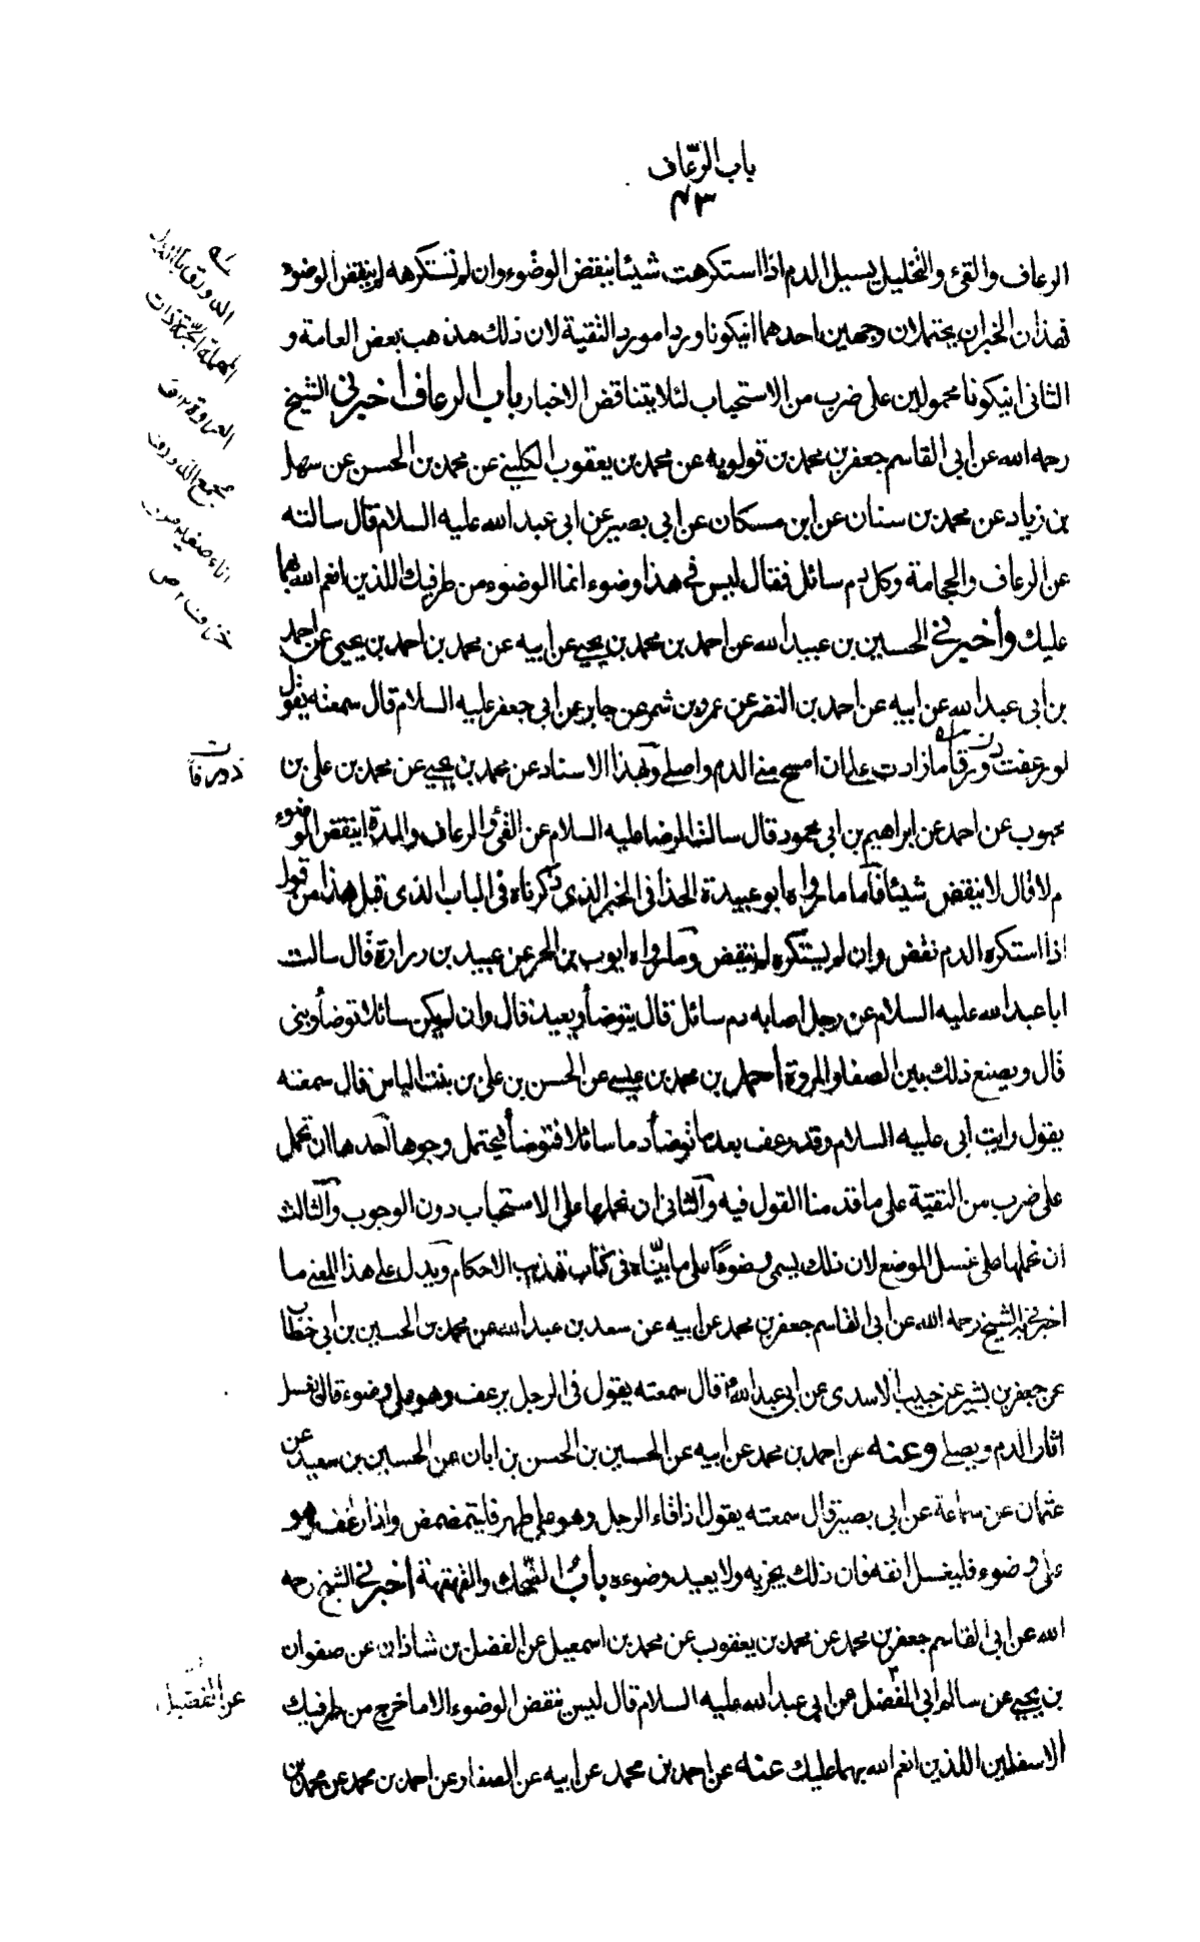 باب الرعّاف
٤٣
الرعاف والقئ والتخليل يسيل الدم اذا استكرهت شيئا ينقض الوضوء وان لم تستكرهه لم ينقض الوضوء
فهذان الخبران يحتملان وجهين احدهما انيكونا وردا مورد التقية لان ذلك مذهب بعض العامة و
الثانى انيكونا محمولين على ضرب من الاستحباب لئلا يتناقض الاخبار باب الرعاف أخبرنى الشيخ
رحمه الله عن ابى القاسم جعفر بن محمد بن قولويه عن محمد بن يعقوب الكلينى عن محمد بن الحسن عن سهل
بن زياد عن محمد بن سنان عن ابن مسكان عن ابى بصير عن ابى عبد الله عليه السلام قال سالته
عن الرعاف والحجامة وكل دم سائل فقال ليس فى هذا وضوء انما الوضوء من طرفيك اللذين انعم الله بهما
عليك وأخبرنى الحسين بن عبيد الله عن احمد بن محمد بن يحيى عن ابيه عن محمد بن احمد بن يحيى عن احمد
بن ابى عبد الله عن ابيه عن احمد بن النضر عن عمرو بن شمر عن جابر عن ابى جعفر عليه السلام قال سمعته يقول
لو رعفت دورقا ما زادت على ان امسح منى الدم واصلى وبهذا الاسناد عن محمد بن يحيى عن محمد بن على بن
دورقا ن
محبوب عن احمد عن ابراهيم بن ابى محمود قال سالت الرضا عليه السلام عن القئ والرعاف والمدة اينقض الوضوء
م لا قال لا ينقض شيئا فاما ما رواه ابو عبيدة الحذا فى الخبر الذى ذكرناه فى الباب الذى قبل هذا من قوله
اذا استكره الدم نقض وان لم يستكره لم ينقض وما رواه ايوب بن الحر عن عبيد بن زرارة قال سالت
ابا عبد الله عليه السلام عن رجل اصابه دم سائل قال يتوضأ ويعيد قال وان لم يكن سائلا توضأ وبنى
قال ويصنع ذلك بين الصفا والمروة أحمد بن محمد بن عيسى عن الحسن بن على بن بنت الياس قال سمعته
يقول رايت ابى عليه السلام وقد رعف بعد ما توضأ دما سائلا فتوضأ فيحتمل وجوها احدها ان تحمل
على ضرب من التقية على ما قدمنا القول فيه والثانى ان نحملها على الاستحباب دون الوجوب والثالث
ان نحملها على غسل الموضع لان ذلك يسمى وضوءا على ما بيّناه فى كتاب تهذيب الاحكام ويدل على هذا المعنى ما
اخبرنى به الشيخ رحمه الله عن ابى القاسم جعفر بن محمد عن ابيه عن سعد بن عبد الله عن محمد بن الحسين بن ابى خطاب
عن جعفر بن بشير عن حبيب الاسدى عن ابى عبد الله ع قال سمعته يقول فى الرجل يرعف وهو على وضوء قال يغسل
اثار الدم ويصلى وعنه عن احمد بن محمد عن ابيه عن الحسين بن الحسن بن ابان عن الحسين بن سعيد عن
عثمان عن سماعة عن ابى بصير قال سمعته يقول اذا قاء الرجل وهو على طهر فليتمضمض واذا رعف وهو
على وضوء فليغسل انفه فان ذلك يجزيه ولا يعيد وضوءه باب الضحك والقهقهة أخبرنى الشيخ رحمه
الله عن ابى القاسم جعفر بن محمد عن محمد بن يعقوب عن محمد بن اسمعيل عن الفضل بن شاذان عن صفوان
بن يحيى عن سالم ابى الفضل عن ابى عبد الله عليه السلام قال ليس ينقض الوضوء الا ما خرج من طرفيك
الاسفلين اللذين انعم الله بهما عليك عنه عن احمد بن محمد عن ابيه عن الصفار عن احمد بن محمد عن محمد بن